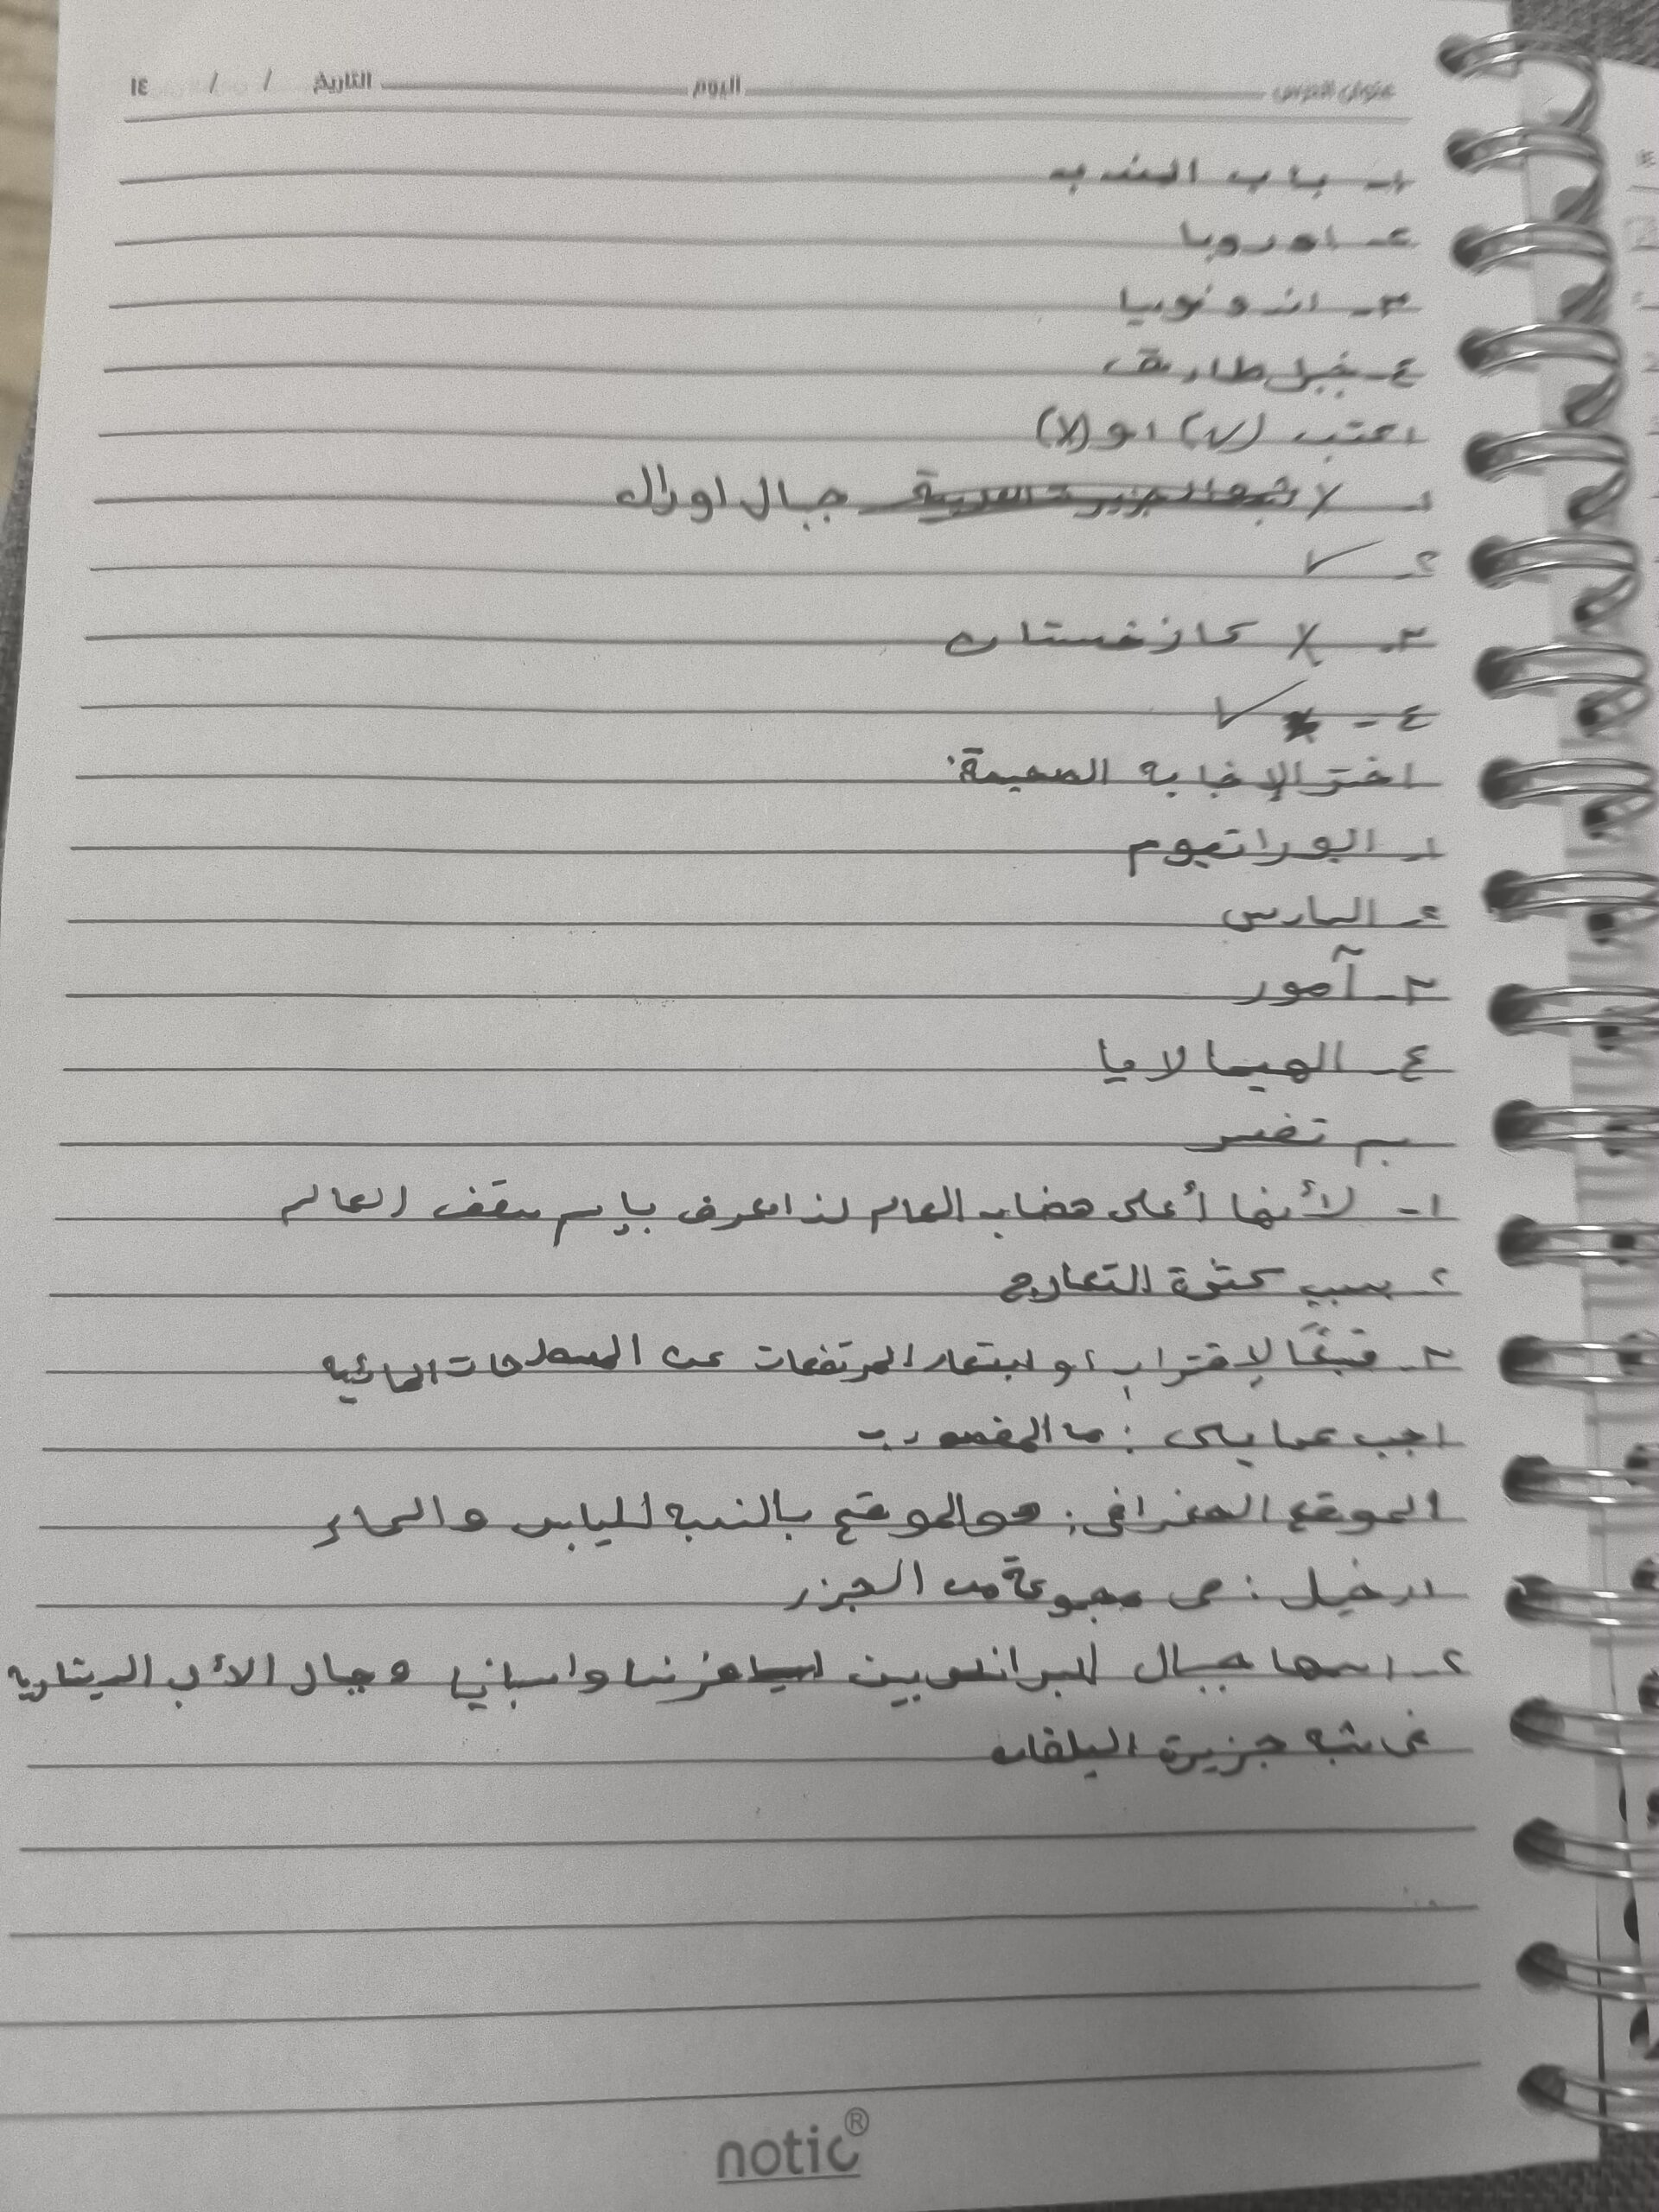 عنوان الدرس اليوم التاريخ / / ١٤
١- باب المندب
٢- اوروبا
٣- اندونوسيا
٤- جبل طارق
اكتب (✓) او (X)
١- X جبال اورال
٢- ✓
٣- X كازخستان
٤- ✓
اختر الإجابه الصحيحة:
١- اليورانيوم
٢- المارس
٣- آمور
٤- الهيمالايا
بم تفسر
١- لأنها أعلى هضاب العالم لذا تعرف بإسم سقف العالم
٢- بسبب كثرة التعاريج
٣- تبعًا لإقتراب او ابتعاد المرتفعات عن المسطحات المائيه
اجب عما يلي : ما المقصود بـ
الموقع الجغرافي : هو الموقع بالنسبه لليابس والماء
ارخبيل : هي مجموعة من الجزر
٢- اسمها جبال البرانس بين فرنسا واسبانيا وجبال الألب الدينارية
في شبه جزيرة البلقان
notic®